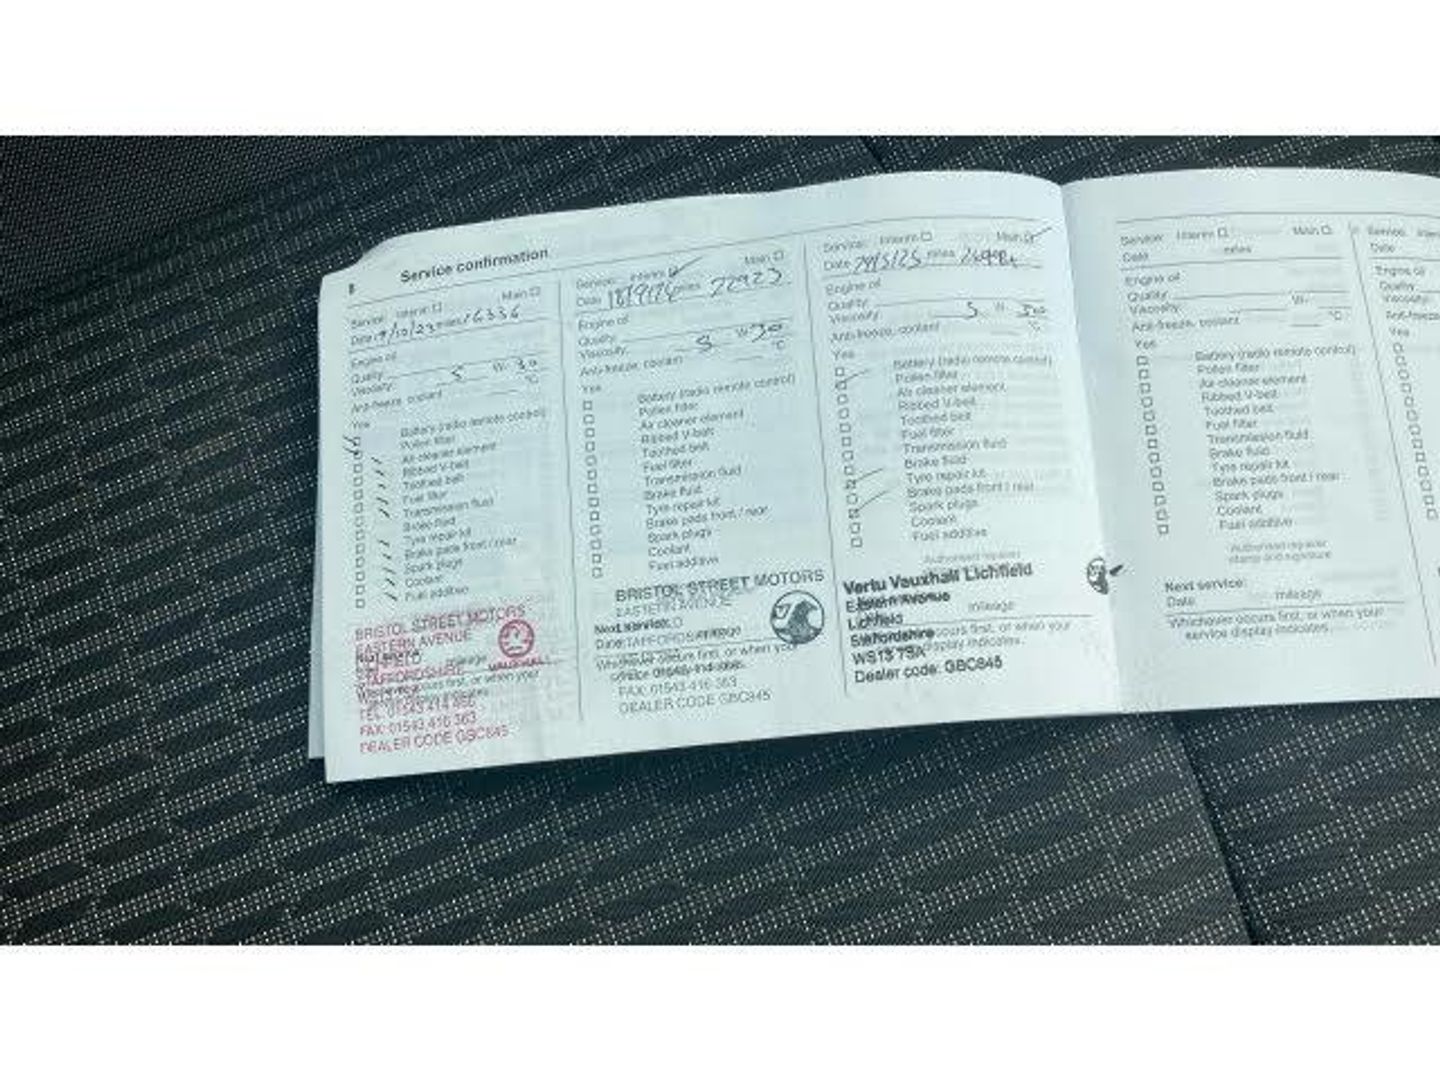 8
Service confirmation
Service: Interim Main
Date 9/10/23 miles 16336
Engine oil
Quality:
Viscosity: 5 W- 30
Anti-freeze, coolant °C
Yes
Battery (radio remote control)
Pollen filter
Air cleaner element
Ribbed V-belt
Toothed belt
Fuel filter
Transmission fluid
Brake fluid
Tyre repair kit
Brake pads front / rear
Spark plugs
Coolant
Fuel additive
BRISTOL STREET MOTORS
EASTERN AVENUE
STAFFORDSHIRE
VAUXHALL
Whichever occurs first, or when your
TEL 01543 414 466
FAX: 01543 416 363
DEALER CODE GBC845
Service: Interim Main
Date 18/9/24 miles 22923
Engine oil
Quality:
Viscosity: 5 W- 30
Anti-freeze, coolant °C
Yes
Battery (radio remote control)
Pollen filter
Air cleaner element
Ribbed V-belt
Toothed belt
Fuel filter
Transmission fluid
Brake fluid
Tyre repair kit
Brake pads front / rear
Spark plugs
Coolant
Fuel additive
BRISTOL STREET MOTORS
EASTERN AVENUE
Next service:
Date STAFFORDSHIRE mileage
Whichever occurs first, or when your
FAX: 01543 416 363
DEALER CODE GBC845
Service: Interim Main
Date miles
Engine oil
Quality:
Viscosity: 5 W- 30
Anti-freeze, coolant °C
Yes
Battery (radio remote control)
Pollen filter
Air cleaner element
Ribbed V-belt
Toothed belt
Fuel filter
Transmission fluid
Brake fluid
Tyre repair kit
Brake pads front / rear
Spark plugs
Coolant
Fuel additive
Authorised repairer
Vertu Vauxhall Lichfield
Eastern Avenue mileage
Lichfield
Staffordshire occurs first, or when your
WS13 7SA display indicates.
Dealer code: GBC845
Service: Interim Main
Date miles
Engine oil
Quality:
Viscosity: W-
Anti-freeze, coolant °C
Yes
Battery (radio remote control)
Pollen filter
Air cleaner element
Ribbed V-belt
Toothed belt
Fuel filter
Transmission fluid
Brake fluid
Tyre repair kit
Brake pads front / rear
Spark plugs
Coolant
Fuel additive
Authorised repairer
stamp and signature
Next service:
Date mileage
Whichever occurs first, or when your
service display indicates.
Service:
Date
Engine oil
Quality:
Viscosity:
Anti-freeze
Yes